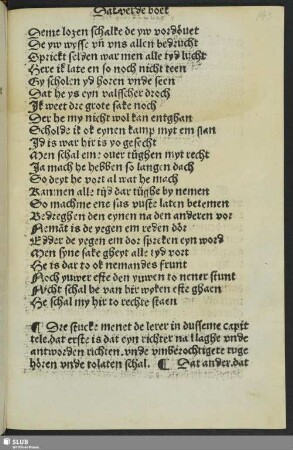 Dat verde boek
Deme lozen schalke de yw vordouet
De yw wysse vn vns allen bedrucht
Sprickt selden war men alle tyd lucht
Here ik late en so noch nicht teen
Gy scholen yd horen vnde seen
Dat he ys eyn valsscher droch
Ik weet dre grote sake noch
Der he my nicht wol kan entghan
Scholde ik ok eynen kamp myt em slan
Id is war hir is yo gesecht
Men schal em ouer tughen myt recht
Ja mach he hebben so langen dach
So deyt he vort al wat he mach
Kan men alle tijd dar tughe by nemen
So machme ene sus vuste laten betemen
Bedreghen den eynen na den anderen vor
Nemāt is de yegen em reden dör
Edder de yegen em dor spreken eyn word
Men syne sake gheyt alle tyd vort
He is dar to ok nemandes frunt
Noch yuwer efte den yuwen to nener stunt
Nycht schal he van hir wyken efte ghaen
He schal my hir to rechte staen
¶ Dre stucke menet de lerer in dusseme capit
tele. dat erste is dat eyn richter na llaghe vnde
antworden richten. vnde vmberochtigete tuge
hören vnde tolaten schal. ¶ Dat ander. dat
SLUB